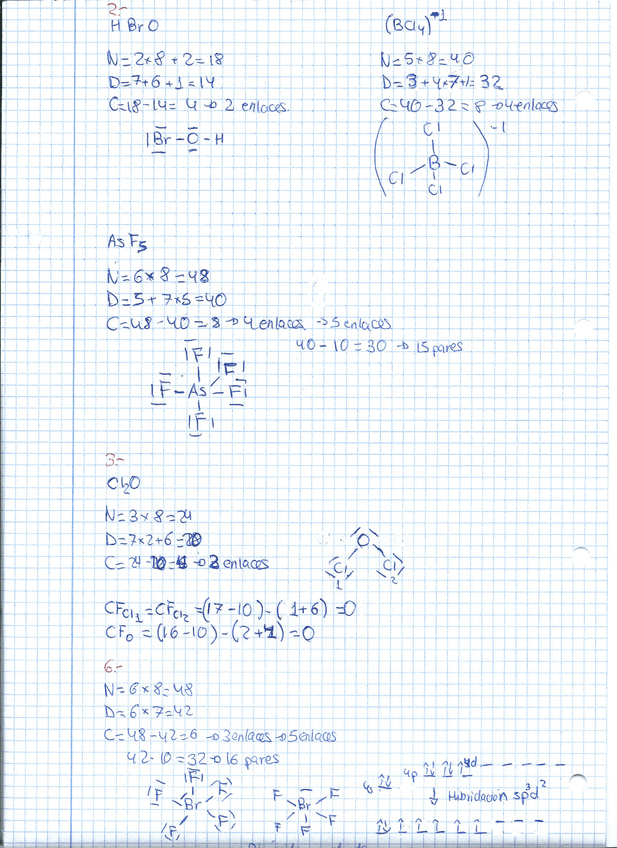 2.-
HBrO
N=2×8+2=18
D=7+6+1=14
C=18-14=4→2 enlaces.
|Br-O-H
(BCl4)-1
N=5×8=40
D=3+4×7+1=32
C=40-32=8→4enlaces
-1
Cl
B
Cl
Cl
Cl
AsF5
N=6×8=48
D=5+7×5=40
C=48-40=8→4enlaces→5enlaces
40-10=30→15pares
|F|
|F|
|F-As-F|
|F|
3.-
Cl2O
N=3×8=24
D=7×2+6=20
C=24-20=4→2enlaces
O
Cl
Cl
1
2
CFCl1=CFCl2=(17-10)-(1+6)=0
CFO=(16-10)-(2+4)=0
6.-
N=6×8=48
D=6×7=42
C=48-42=6→3enlaces→5enlaces
42-10=32→16pares
4s
4p
4d
Hibridación sp3d2
|F|
F
F
Br
F
F
F
F
Br
F
F
F